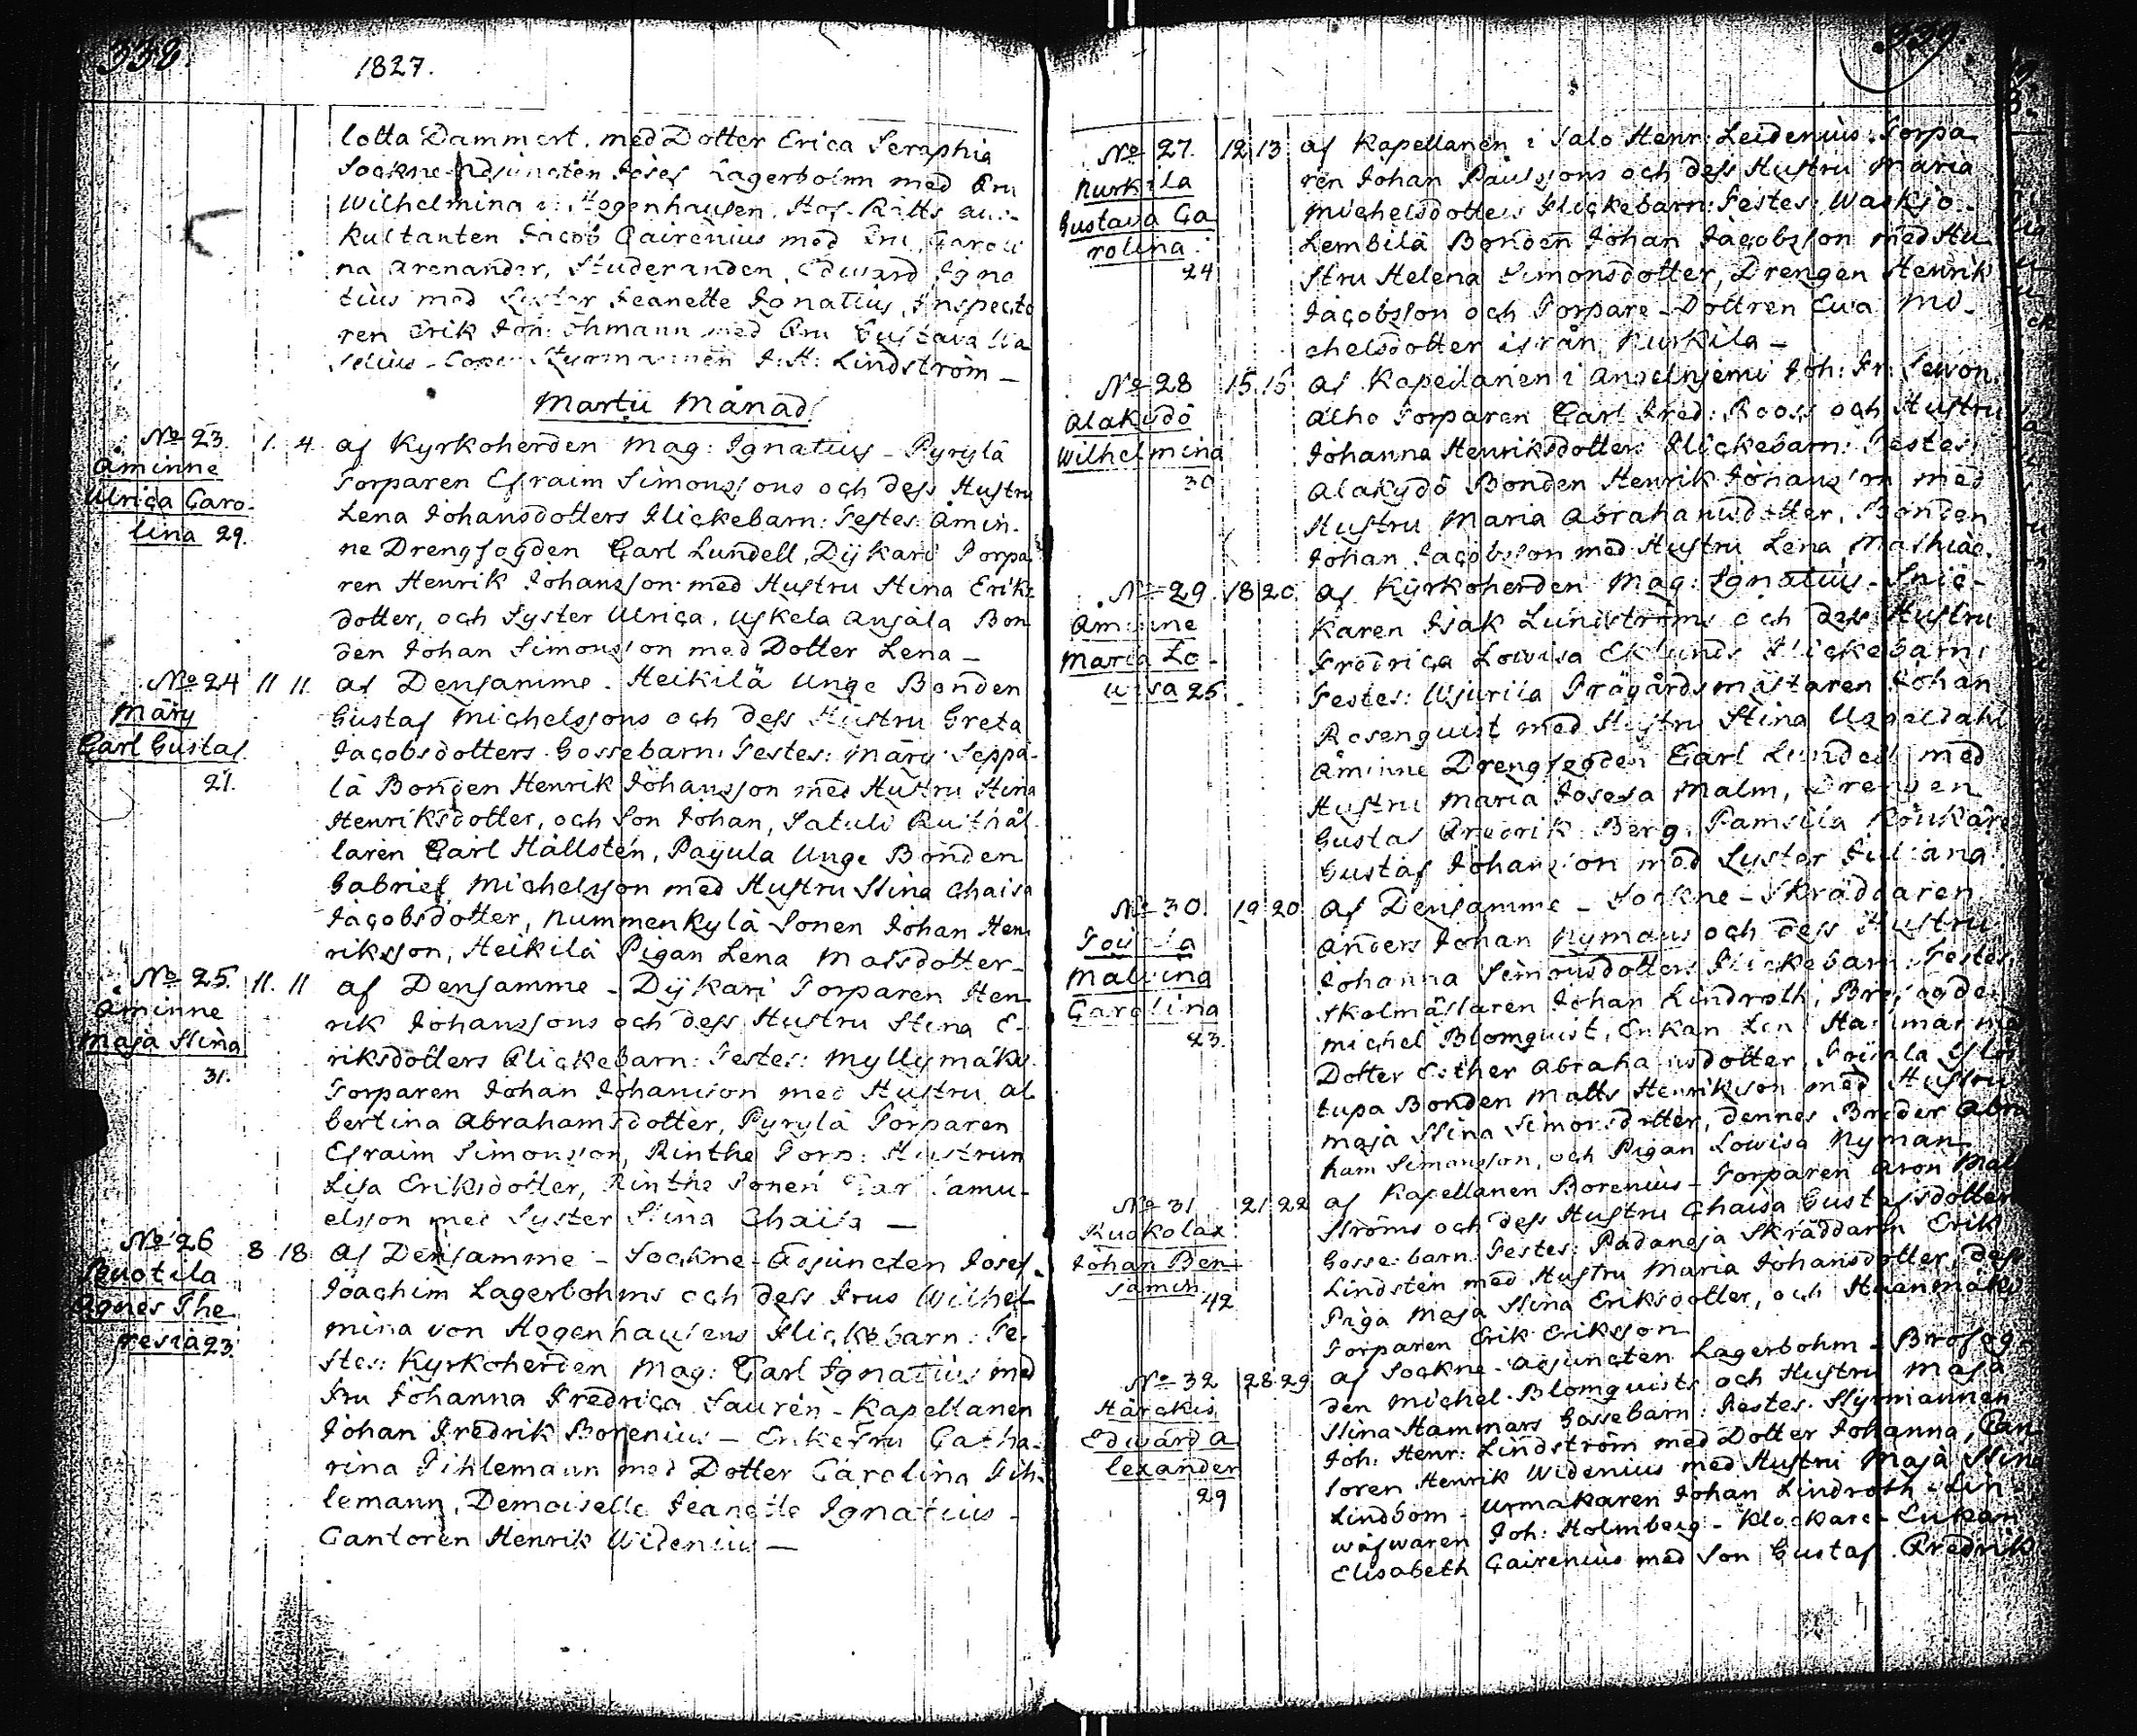 338
1827.
lotta Dammert. med Dotter Erica Seraphia
Sockne Adjuncten Josef Lagerbohm med Fru
Wilhelmina v: Hogenhausen. Hof-Rätts aus-
kultanten Jacob Cairenius med Fru Caroli
na Arenander, Studeranden Edward Igna
tius med Syster Jeanette Ignatius, Inspecto
ren Erik Joh: Öhmann med Fru Gustava
Styrmannen J: H: Lindström _
Martii Månad.
No 23.
Åminne
Ulrica Caro-
lina 29.
1. 4.
af Kyrkoherden Mag: Ignatius - Pyrylä
Torparen Efraim Simonssons och dess Hustru
Lena Johansdotters Flickebarn: Testes: Åmin-
ne Drengfogden Carl Lundell, Dijkari Torpa
ren Henrik Johansson med Hustru Stina Eriks
dotter, och Syster Ulrica, Uskela Anjala Bon
den Johan Simonsson med Dotter Lena _
No 24
Märy
Carl Gustaf
21.
11 11.
af Densamme - Heikilä Unge Bonden
Gustaf Michelssons och dess Hustru Greta
Jacobsdotters Gossebarn: Testes: Märy Seppä-
lä Bonden Henrik Johansson med Hustru Stina
Henriksdotter, och Son Johan, Satulö Rusthål
laren Carl Hällsten, Payula Unge Bonden
Gabriel Michelsson med Hustru Stina Chaisa
Jacobsdotter, Nummenkylä Sonen Johan Hen
riksson, Heikilä Pigan Lena Matsdotter _
No 25.
Åminne
Maja Stina
31.
11. 11
af Densamme - Dijkari Torparen Hen
rik Johanssons och dess Hustru Stina E-
riksdotters Flickebarn: Testes: Myllymäki
Torparen Johan Johansson med Hustru Al
bertina Abrahamsdotter, Pyrylä Torparen
Efraim Simonsson, Rinthe Torp: Hustrun
Lisa Eriksdotter, Rinthe Sonen Carl Samu-
elsson med Syster Stina Chaisa _
No 26
Ruotila
Agnes The
resia 23.
8 18
af Densamme - Sockne-Adjuncten Josef
Joachim Lagerbohms och dess Frus Wilhel-
mina von Hogenhausens Flickebarn: Te-
stes: Kyrkoherden Mag: Carl Ignatius med
Fru Johanna Fredrica Saurén - Kapellanen
Johan Fredrik Borenius - EnkeFru Catha-
rina Pihlemann med Dotter Carolina Pih-
lemann, Demoiselle Jeanette Ignatius -
Cantoren Henrik Widenius _
339.
No 27.
Kurkila
Gustava Ca
rolina
24
12 13
af Kapellanen i Salo Henr: Leidenius: Torpa
ren Johan Paulssons och dess Hustru Maria
Michelsdotters Flickebarn: Testes: Waskio
Lembilä Bonden Johan Jacobsson med Hu
stru Helena Simonsdotter, Drengen Henrik
Jacobsson och Torpare-Dottren Eva Mi-
chelsdotter ifrån Kurkila _
No 28
Alakydö
Wilhelmina
30
15 15
af Kapellanen i Angelniemi Joh: Fr: Sewon.
Alho Torparen Carl Fred: Rooss och Hustru
Johanna Henriksdotters Flickebarn: Testes
Alakydö Bonden Henrik Johansson med
Hustru Maria Abrahamsdotter, Bonden
Johan Jacobsson med Hustru Lena Mathiae.
No 29.
Åminne
Maria Lo-
uisa 25.
18 20.
af Kyrkoherden Mag: Ignatius - Snic-
karen Isak Lundströms och dess Hustru
Fredrica Lowisa Eklunds Flickebarn:
Testes: Wiurila Trägårdsmästaren Johan
Rosenquist med Hustru Stina
Åminne Drengfogden Carl Lundell med
Hustru Maria Josefa Malm, Drengen
Gustaf Fredrik Berg,
Gustaf Johansson med Syster Juliana.
No 30.
Malvina
Carolina
23.
19 20
af Densamme - Sockne-Skräddaren
Anders Johan Nymans och dess Hustru
Johanna Simonsdotters Flickebarn: Testes
Skolmästaren Johan Lindroth, Brofogden
Michel Blomquist, Enkan Lena Hammar med
Dotter Esther Abrahamsdotter,
tupa Bonden Matts Henriksson med Hustru
Maja Stina Simonsdotter, dennes Broder Abra
ham Simonsson, och Pigan Lowisa Nyman
No 31
Kuokolax
Johan Ben-
jamin
42
21 22
af Kapellanen Borenius - Torparen Aron Mal
ströms och dess Hustru Chaisa Gustafsdotters
Gosse-barn: Testes: Padanoja Skräddaren Erik
Lindstén med Hustru Maria Johansdotter, dess
Piga Maja Stina Eriksdotter, och
Torparen Erik Eriksson
No 32
Härckis
Edward A
lexander
29
28 29
af Sockne-Adjuncten Lagerbohm - Brofog-
den Michel Blomquists och Hustru Maja
Stina Hammars Gossebarn: Testes: Styrmannen
Joh: Henr: Lindström med Dotter Johanna, Can
toren Henrik Widenius med Hustru Maja Stina
Lindbom - Urmakaren Johan Lindroth - Lin-
wäfwaren Joh: Holmberg - Klockare-Enkan
Elisabeth Cairenius med Son Gustaf Fredrik